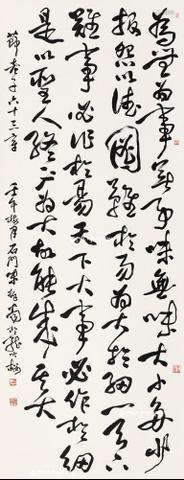 為無為事無事味無味大小多少
報怨以德圖難於易為大於細天下
難事必作於易天下大事必作於細
是以聖人終不為大故能成其大
節老子六十三章 壬午梅月石門